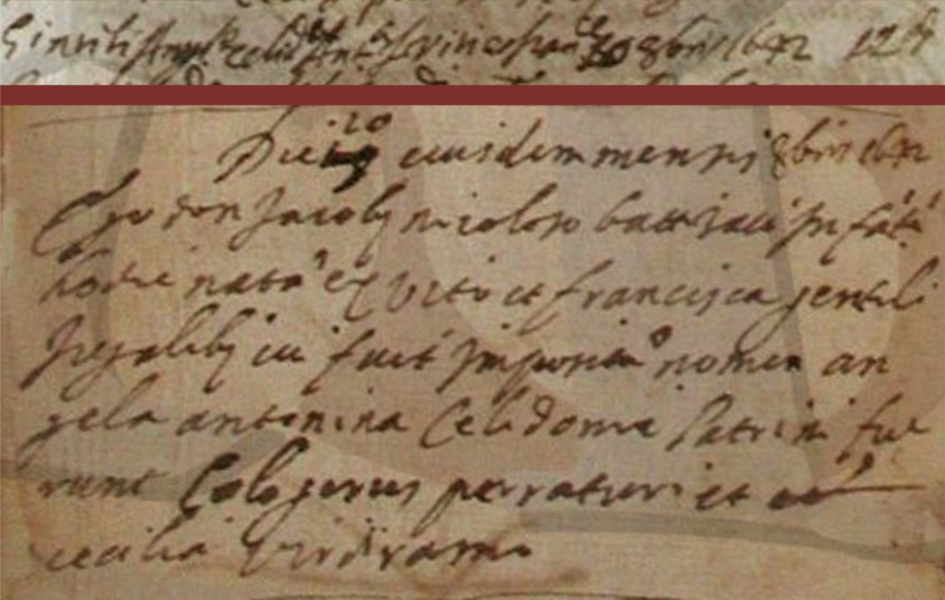 Gintili Ang.la Celid.a Ant.a f. Vito et fran.ca 30 8bris 1642 124
Die 30 eiusdem mensis 8bris 1642
Ego don Jacobus nicoloso battizavi Infatē
hodie natā ex Vito et francisca gentili
Jugalibus cui fuit impositū nomen an
gela antonina Celidonia Patrini fue
runt Calogerus perratori et
cecilia Virdiramo